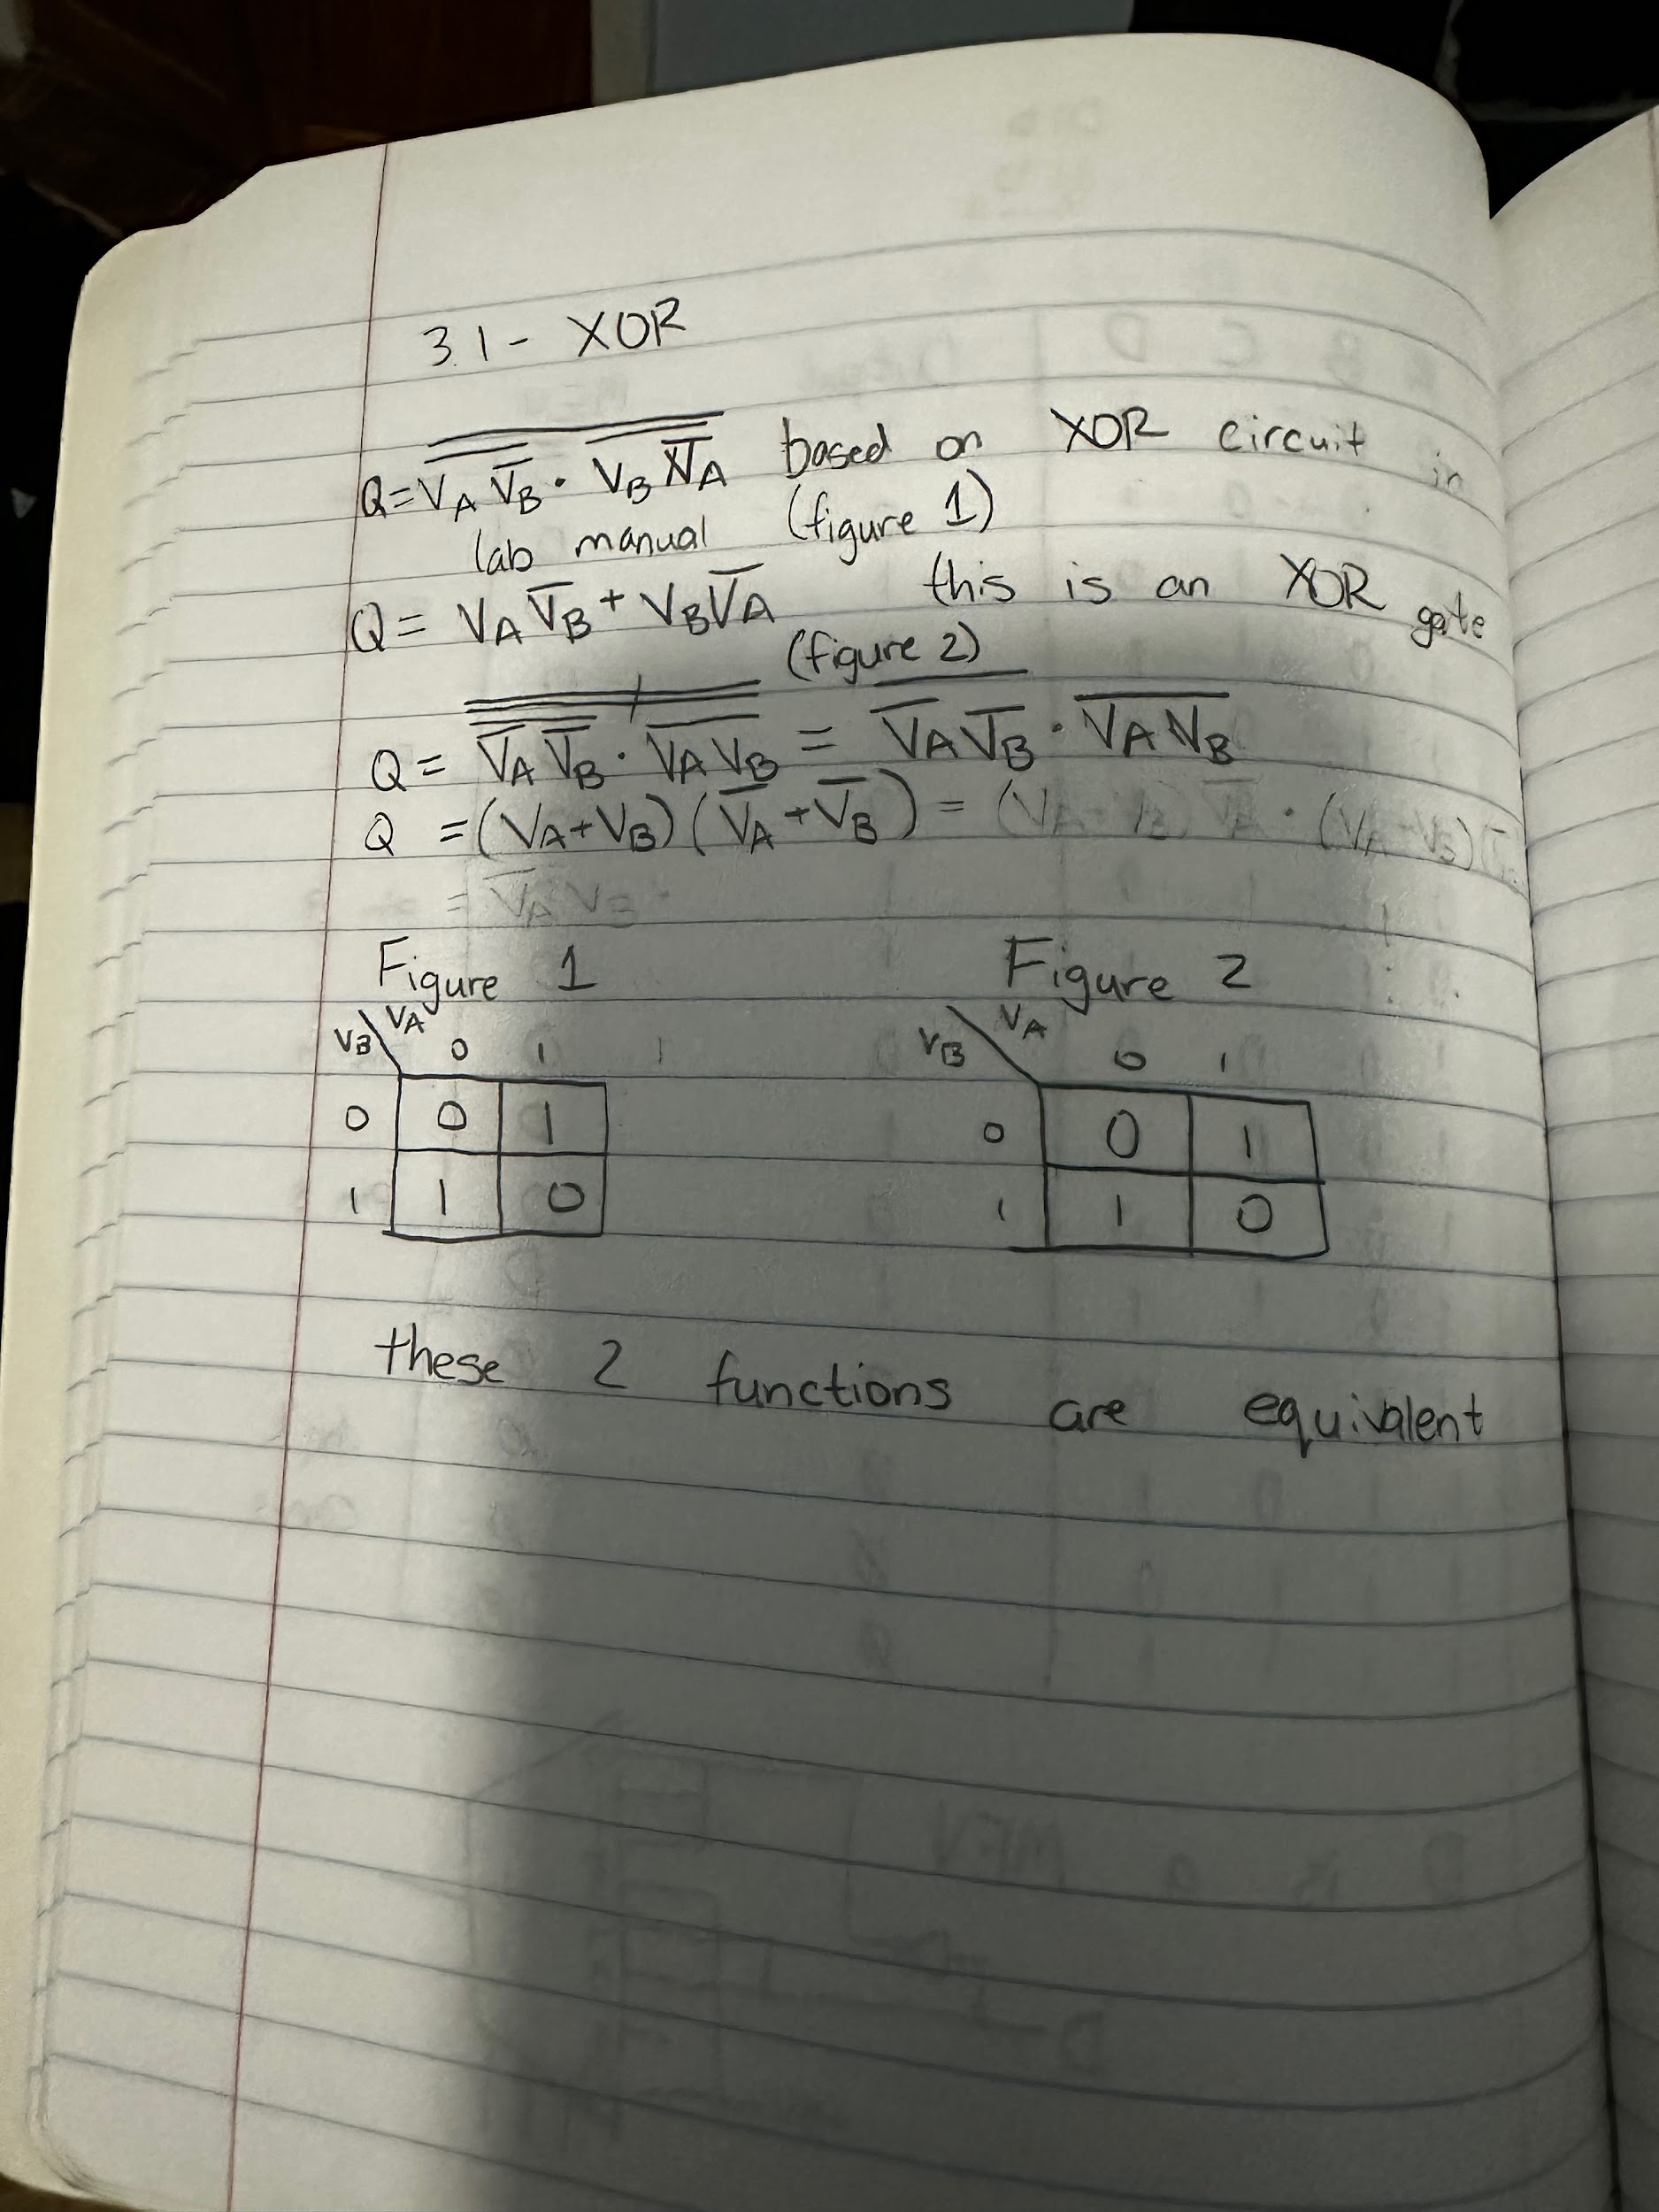 3.1 - XOR
Q = V̅_A̅ ̅V̅_B̅ · V̅_B̅ ̅V̅_A̅ based on XOR circuit in
lab manual (figure 1)
Q = V_A V̅_B + V_B V̅_A this is an XOR gate
(figure 2)
Q = V̅_A V̅_B · V_A V_B = V̅_A V̅_B · V_A V_B
Q = (V_A + V_B) (V̅_A + V̅_B) =
Figure 1 Figure 2
V_B V_A V_B V_A
0 1 0 1
0 0 1 0 0 1
1 1 0 1 1 0
these 2 functions are equivalent